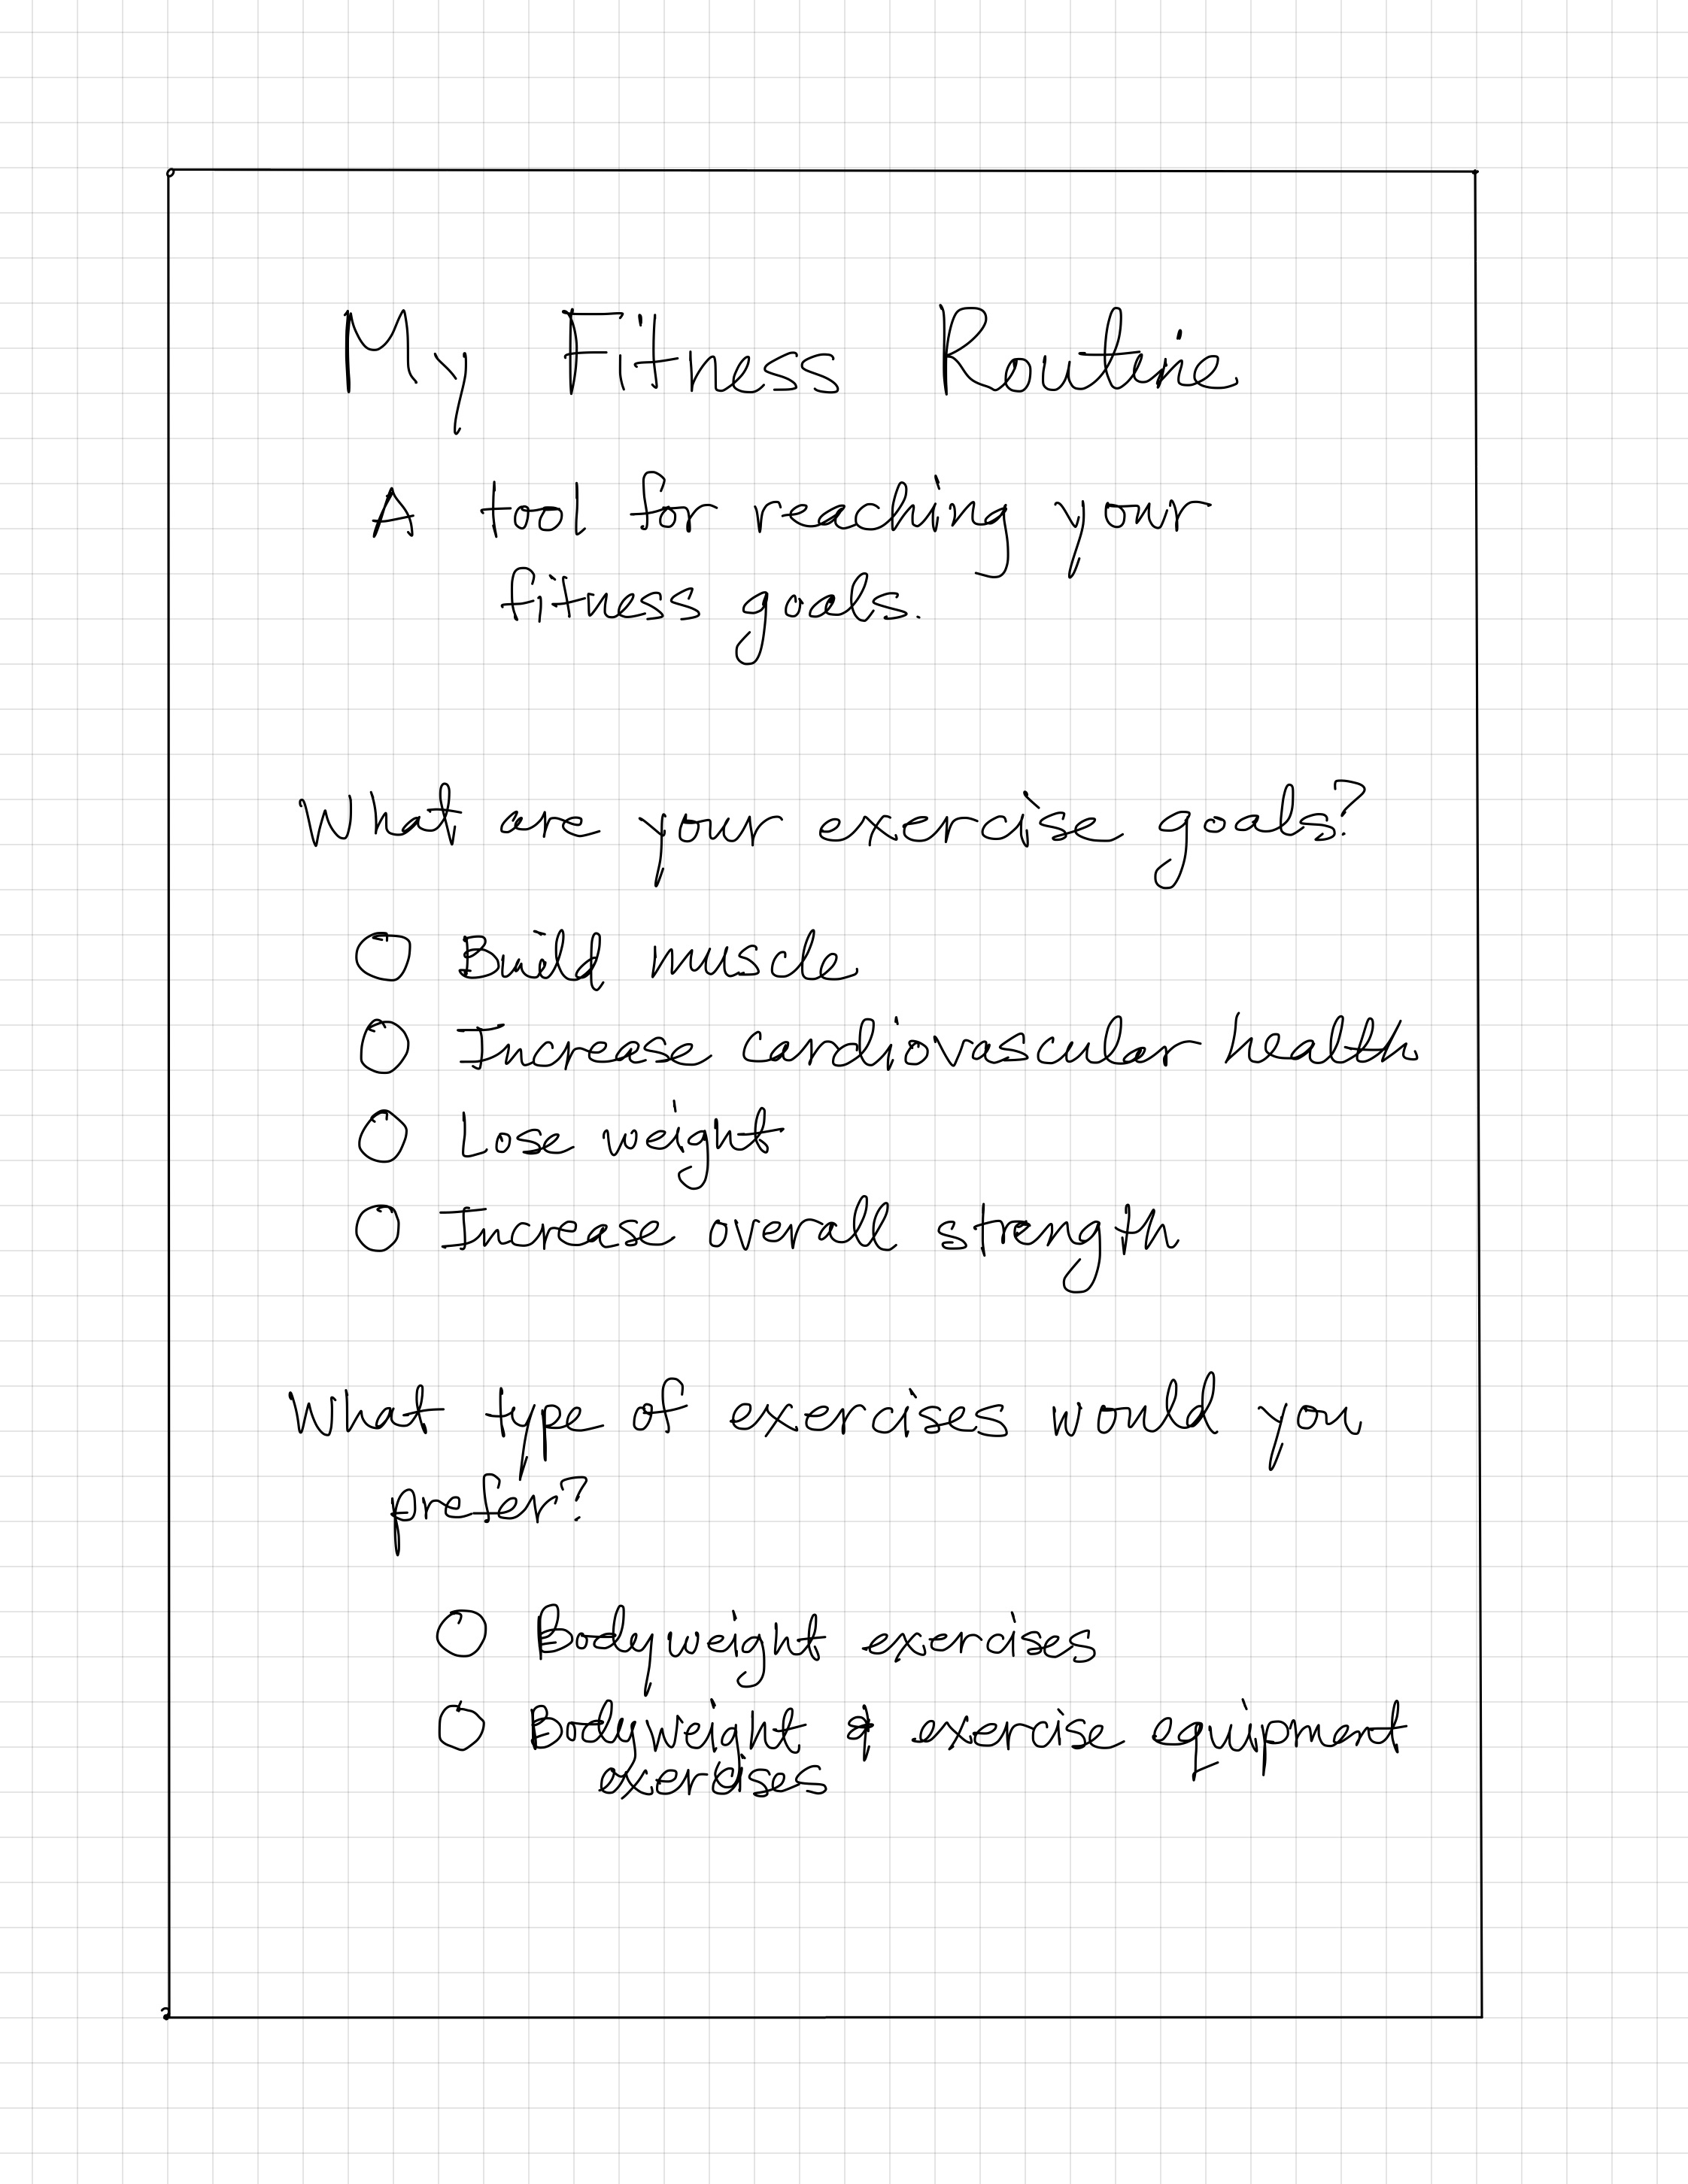 My Fitness Routine
A tool for reaching your
fitness goals.
What are your exercise goals?
Build muscle
Increase cardiovascular health
Lose weight
Increase overall strength
What type of exercises would you
prefer?
Bodyweight exercises
Bodyweight & exercise equipment
exercises